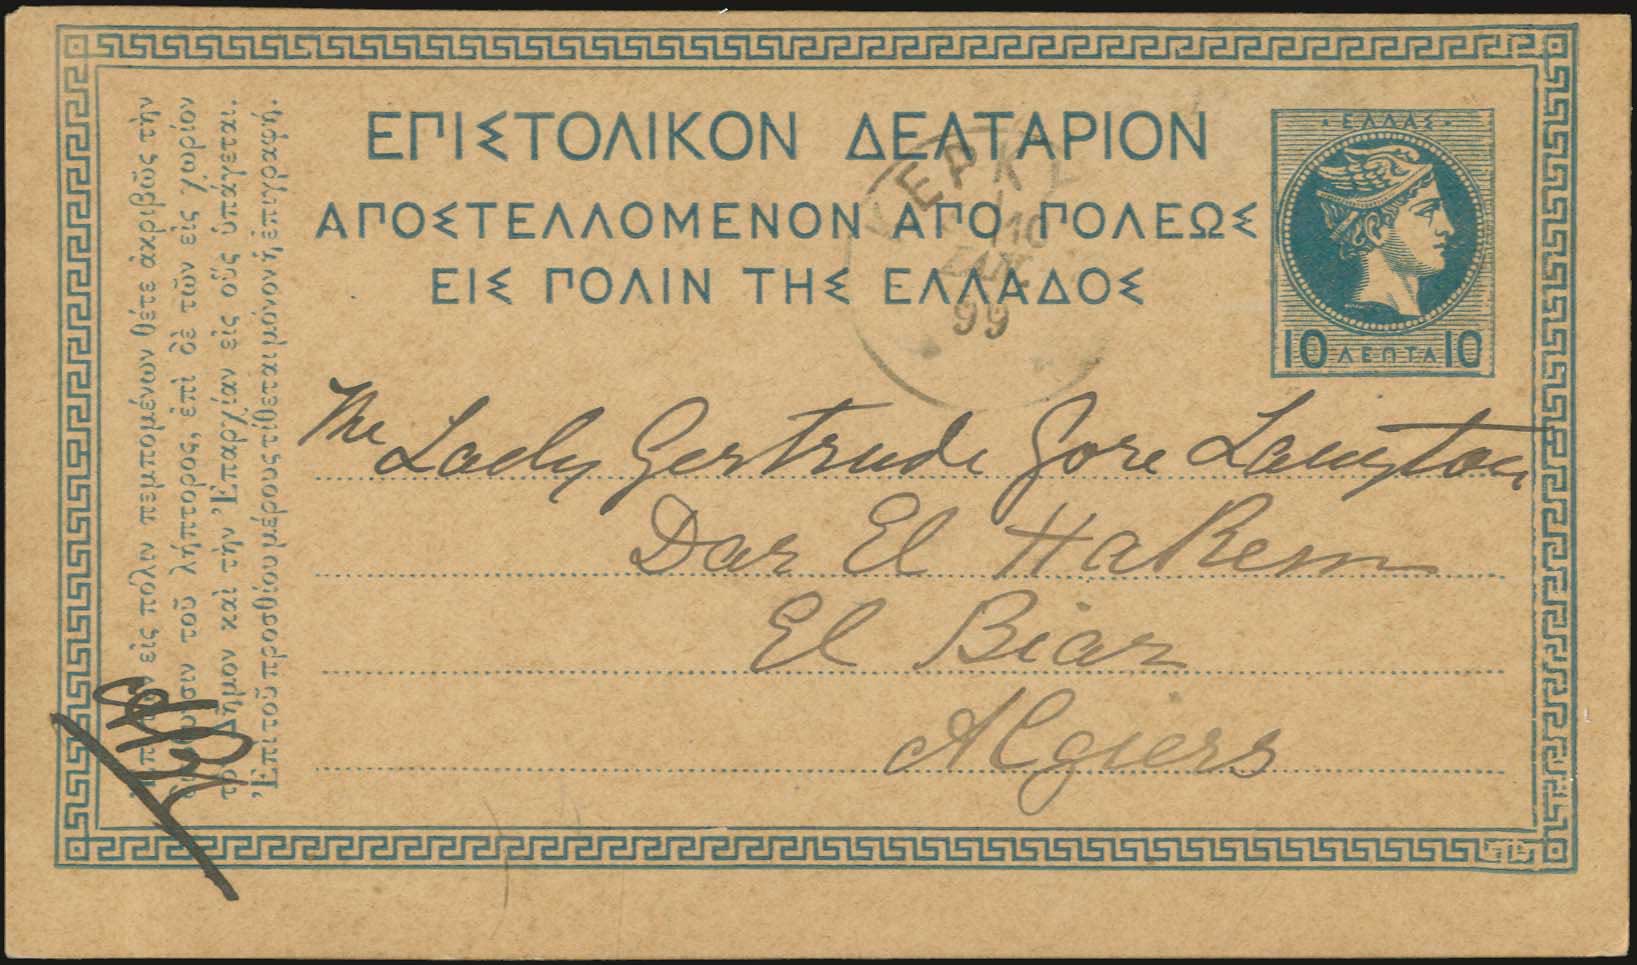 ΕΠΙΣΤΟΛΙΚΟΝ ΔΕΛΤΑΡΙΟΝ
ΑΠΟΣΤΕΛΛΟΜΕΝΟΝ ΑΠΟ ΠΟΛΕΩΣ
ΕΙΣ ΠΟΛΙΝ ΤΗΣ ΕΛΛΑΔΟΣ
ΕΛΛΑΣ
10 ΛΕΠΤΑ 10
ΚΕΡΚ
10
ΙΑΝ
99
The Lady Gertrude Gore Langton
Dar El Hakem
El Biar
Algiers
εἰς πόλιν πεμπομένων θέτε ἀκριβῶς τὴν
τοῦ λήπτορος, ἐπὶ δὲ τῶν εἰς χωρίον
Δῆμον καὶ τὴν Ἐπαρχίαν εἰς οὓς ὑπάγεται.
Ἐπὶ τοῦ προσθίου μέρους τίθεται μόνον ἡ ἐπιγραφή.